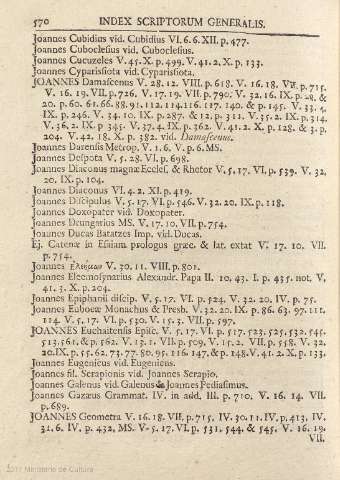 570 INDEX SCRIPTORUM GENERALIS.
Joannes Cubidius vid. Cubidius VI. 6. 6. XII. p. 477.
Joannes Cuboclesius vid. Cuboclesius.
Joannes Cucuzeles V. 45. X. p. 499. V. 41. 2. X. p. 133.
Joannes Cyparissiota vid. Cyparissiota.
JOANNES Damascenus V. 28. 12. VIII. p. 618. V. 16. 18. VII. p. 715.
V. 16. 19. VII. p. 726. V. 17. 19. VII. p. 790. V. 32. 16. IX. p. 28. &
20. p. 60. 61. 66. 88. 91. 112. 114. 116. 117. 140. & p. 145. V. 33. 4.
IX. p. 246. V. 34. 10. IX. p. 287. & 12. p. 311. V. 35. 2. IX. p. 314.
V. 36. 2. IX. p. 345. V. 37. 4. IX. p. 362. V. 41. 2. X. p. 128. & 3. p.
204. V. 42. 18. X. p. 382. vid. Damascenus.
Joannes Darensis Metrop. V. 1. 6. V. p. 6. MS.
Joannes Despota V. 5. 28. VI. p. 698.
Joannes Diaconus magnæ Eccles. & Rhetor V. 5, 17. VI. p. 539. V. 32,
20. IX. p. 104.
Joannes Diaconus VI. 4. 2. XI. p. 419.
Joannes Discipulus V. 5. 17. VI. p. 546. V. 32. 20. IX. p. 118.
Joannes Doxopater vid. Doxopater.
Joannes Drungarius MS. V. 17. 10. VII. p. 754.
Joannes Ducas Batatzes Imp. vid. Ducas.
Ej. Catenæ in Esaiam prologus græc. & lat. extat V. 17. 10. VII.
p. 754.
Joannes V. 29. 11. VIII. p. 801.
Joannes Eleemosynarius Alexandr. Papa II. 10. 43. I. p. 435. not. V,
41. 3. X. p. 204.
Joannes Epiphanii discip. V. 5. 17. VI. p. 524. V. 32. 20. IV. p. 75.
Joannes Euboeæ Monachus & Presb. V. 32. 20. IX. p. 86. 63. 97. 111.
114. V. 5. 17. VI. p. 530. V. 15. 3. VII. p. 597.
JOANNES Euchaitensis Episc. V. 5. 17. VI. p. 517. 523. 525. 532. 545.
513. 561. & p. 562. V. 15. 1. VII. p. 509. V. 15. 2. VII. p. 558. V. 32.
20. IX. p. 55. 62. 73. 77. 80. 95. 116. 147. & p. 148. V. 41. 2. X. p. 133.
Joannes Eugenicus vid. Eugenicus.
Joannes fil. Serapionis vid. Joannes Serapio.
Joannes Galenus vid. Galenus & Joannes Pediasimus.
Joannes Gazæus Grammat. IV. in add. III. p. 710. V. 16. 14. VII.
p. 689.
JOANNES Geometra V. 16. 18. VII. p. 715. IV. 30. 11. IV. p. 413. IV.
31. 6. IV. p. 432. MS. V. 5. 17. VI. p. 531. 544. & 545. V. 16. 19.
VII.
2017 Ministerio de Cultura